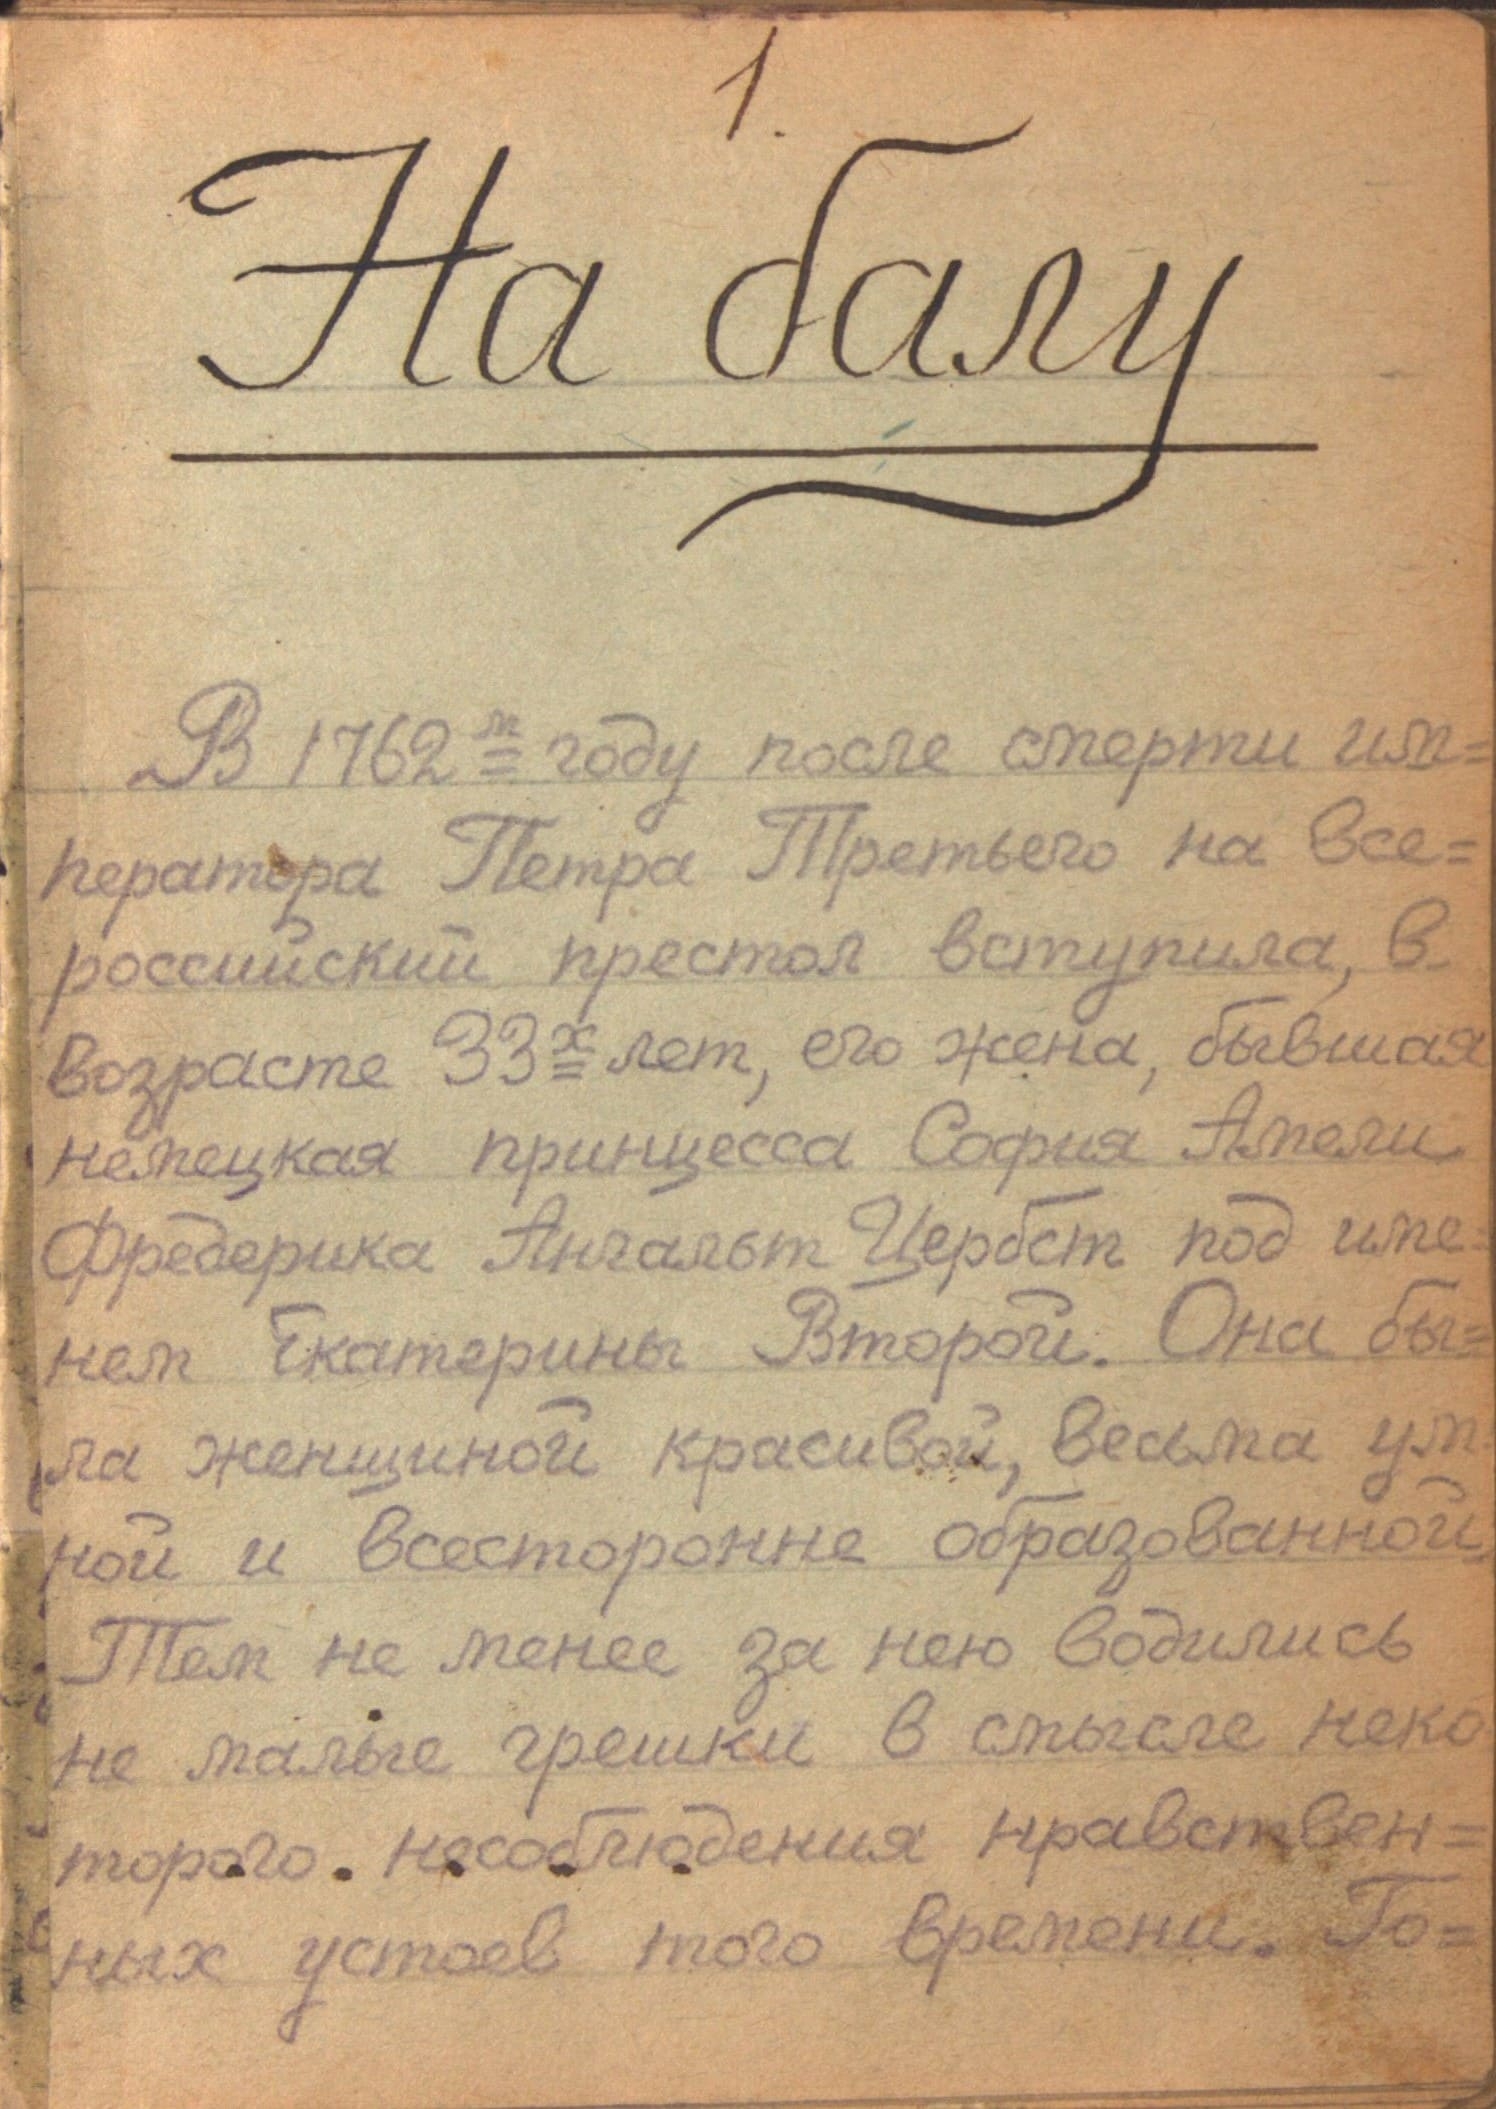 1.
На балу
В 1762м году после смерти им=
ператора Петра Третьего на все=
российский престол вступила, в
возрасте 33х лет, его жена, бывшая
немецкая принцесса София Амели
Фредерика Ангальт Цербст под име=
нем Екатерины Второй. Она бы=
ла женщиной красивой, весьма ум-
ной и всесторонне образованной.
Тем не менее за нею водились
не малые грешки в смысле неко
торого несоблюдения нравствен=
ных устоев того времени. Го=